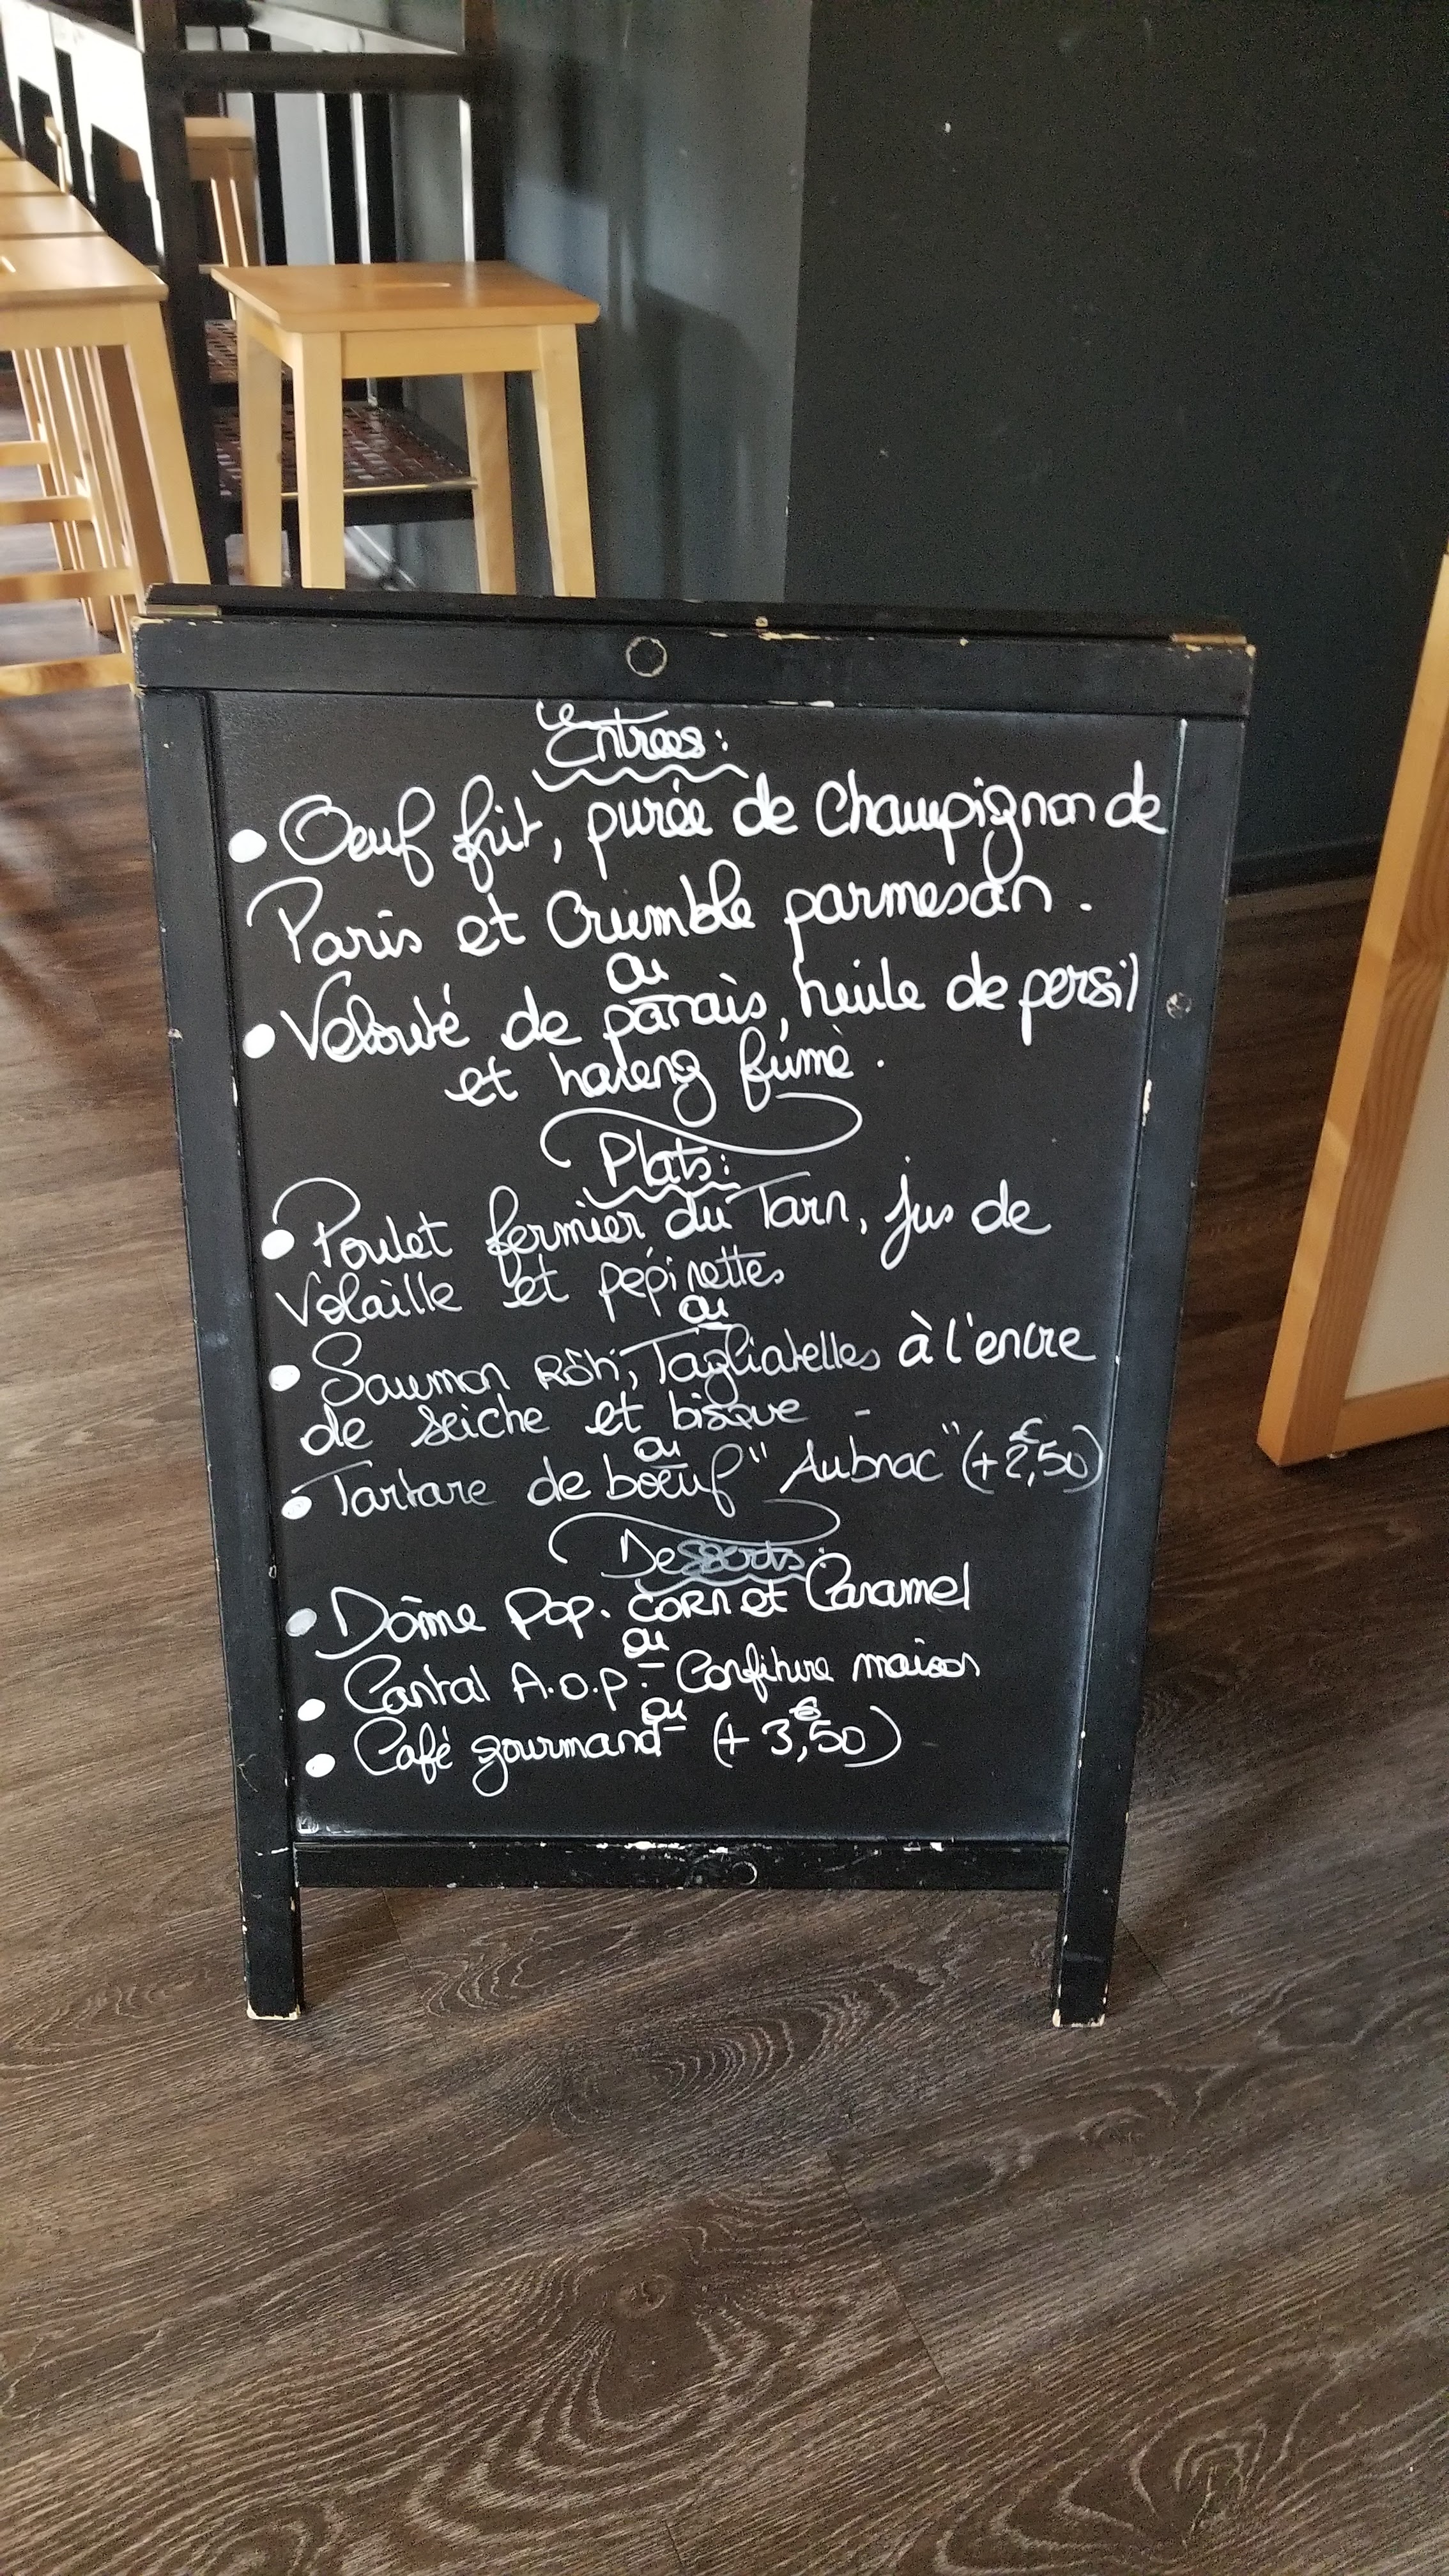 Entrées:
• Oeuf frit, purée de Champignon de
Paris et Crumble parmesan.
ou
• Velouté de panais, huile de persil
et hareng fumé.
Plats:
• Poulet fermier du Tarn, jus de
Volaille et pépinettes
ou
• Saumon Rôti, Tagliatelles à l'encre
de seiche et bisque -
ou
• Tartare de boeuf "Aubrac" (+2,50€)
Desserts:
• Dôme Pop. corn et Caramel
ou
• Cantal A.O.P. Confiture maison
ou
• Café gourmand (+ 3,50€)